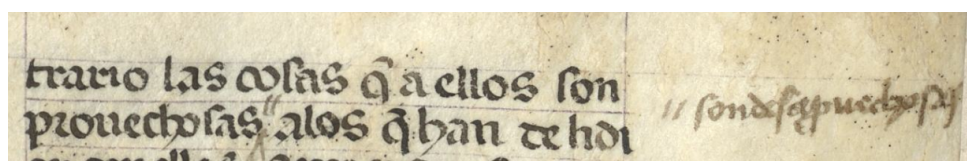 trario las cosas q̃ a ellos son
prouechosas〃alos q̃ han de lidi
〃 son desaprouechosas